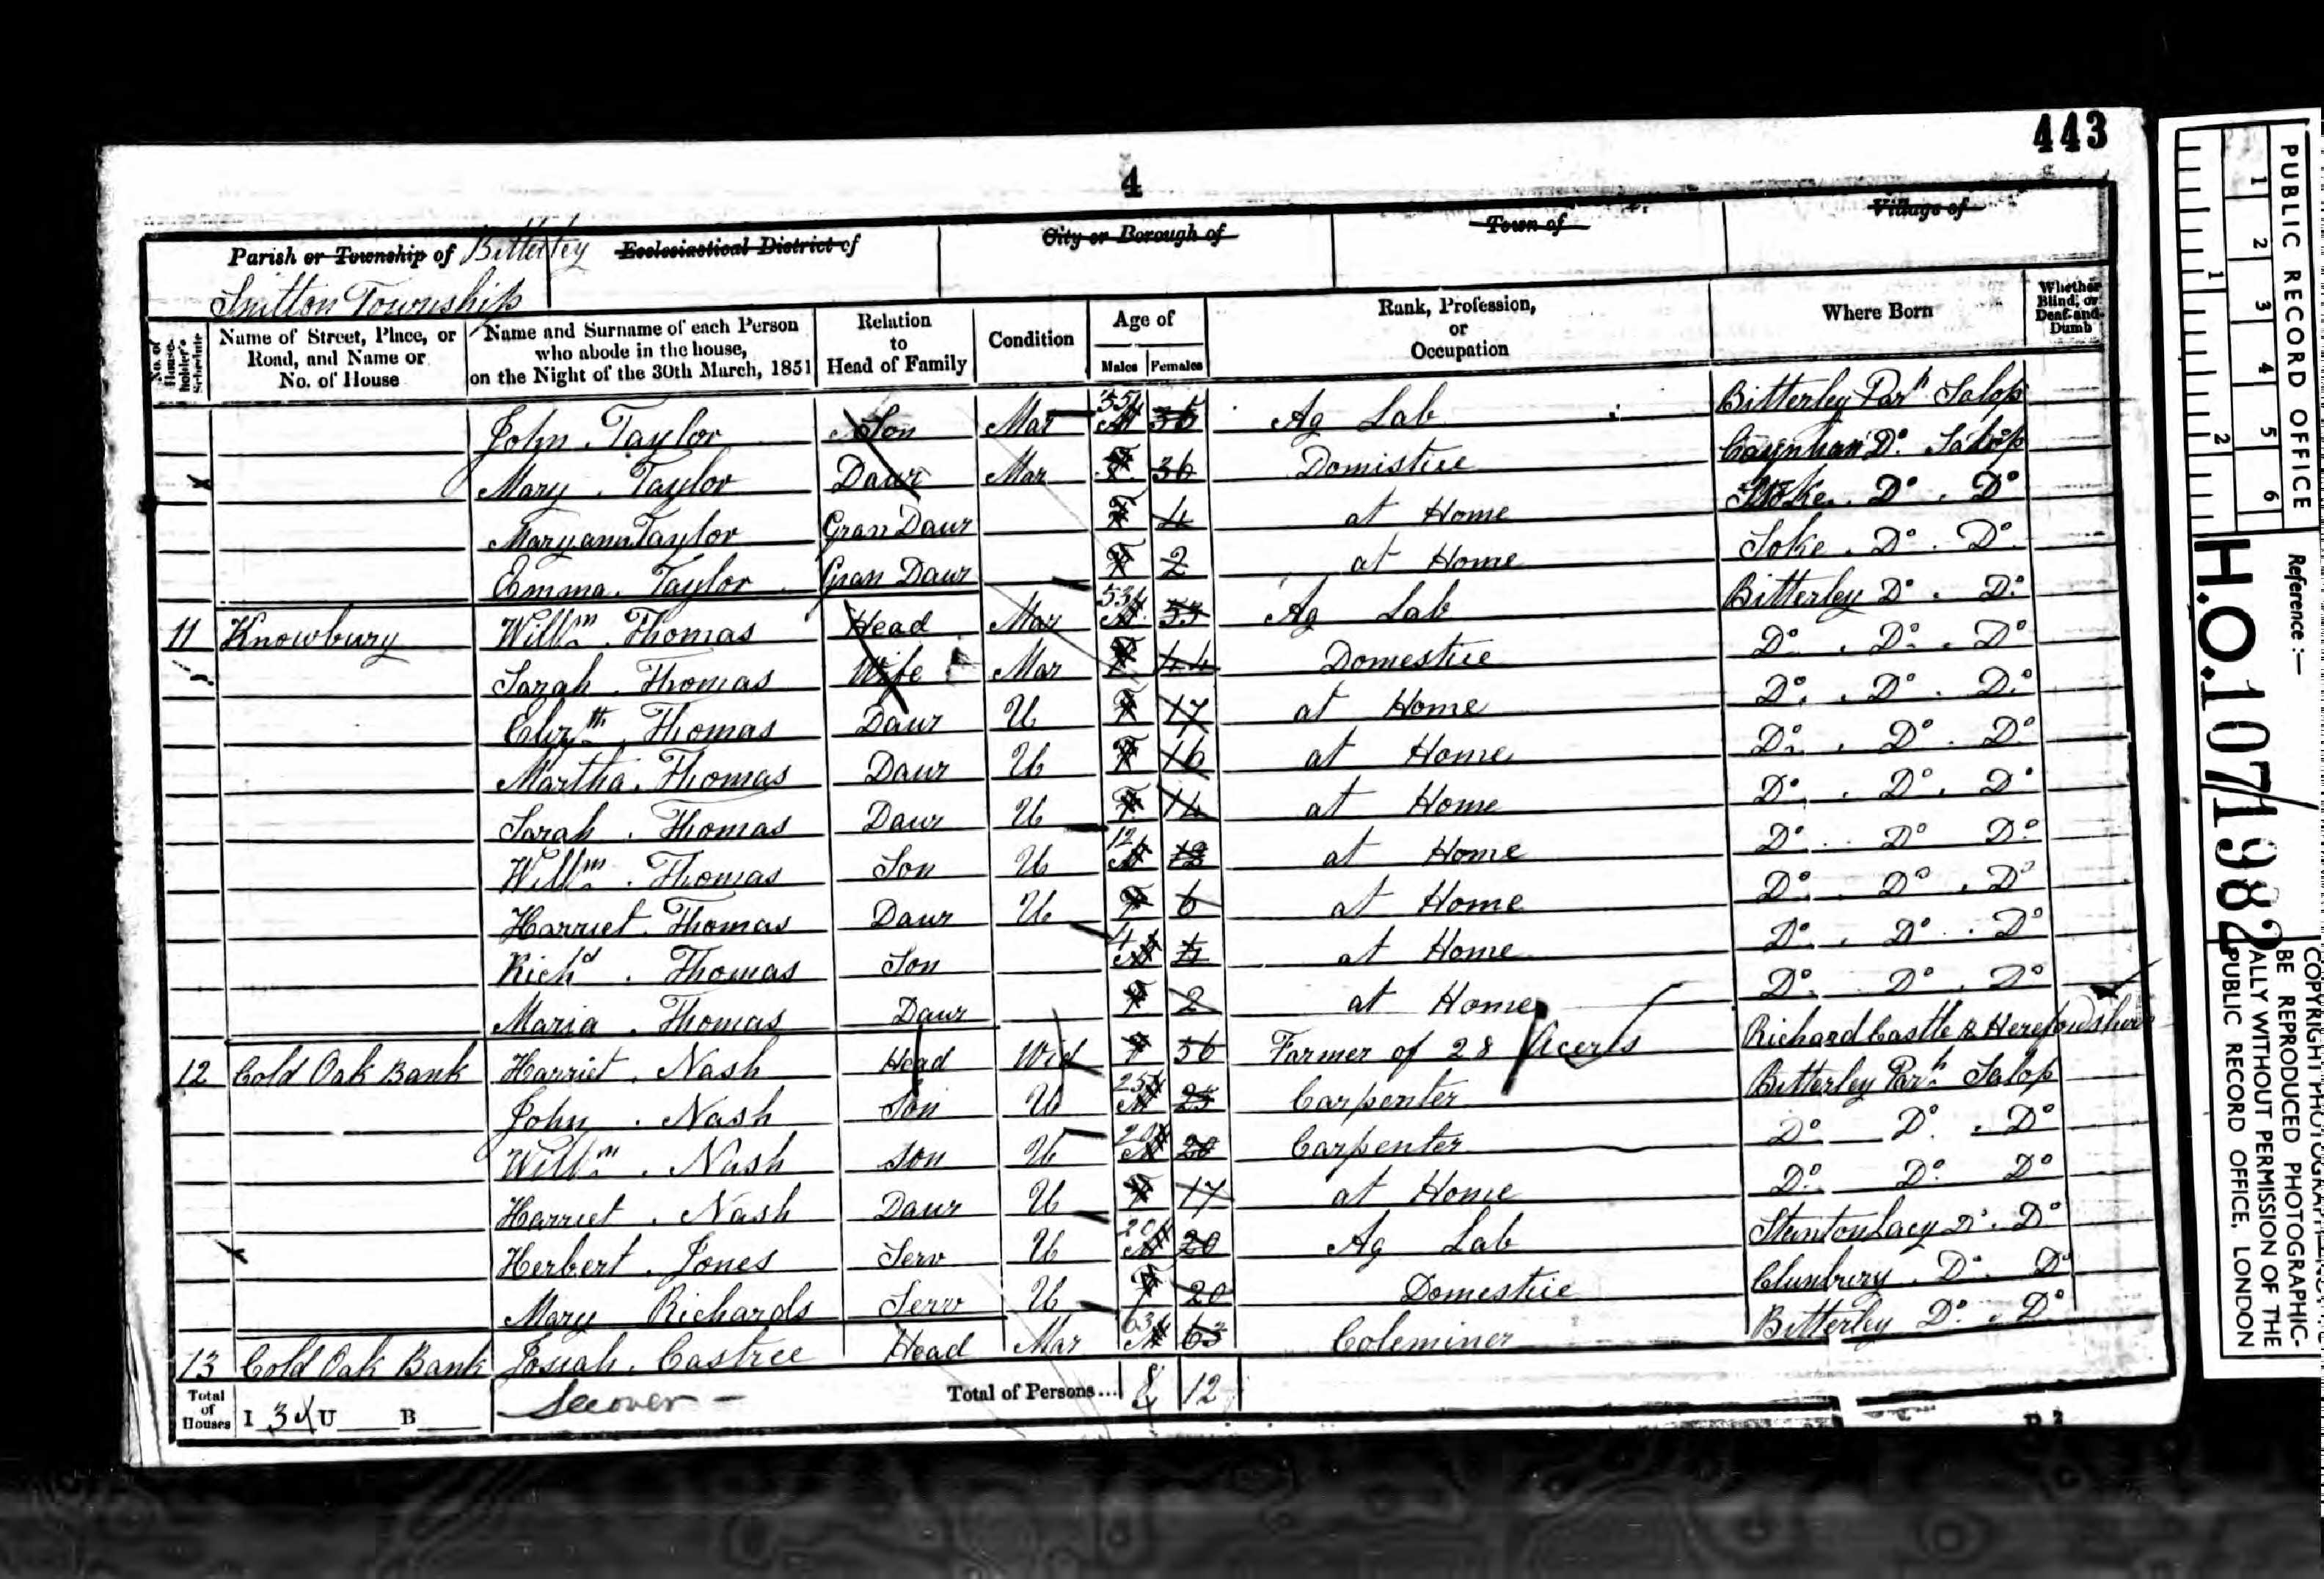 443
4
Parish or Township of Bitterley
Snitton Township
Ecclesiastical District of
City or Borough of
Town of
Village of
No. of House-holder's Schedule
Name of Street, Place, or Road, and Name or No. of House
Name and Surname of each Person who abode in the house, on the Night of the 30th March, 1851
Relation to Head of Family
Condition
Age of
Males Females
Rank, Profession, or Occupation
Where Born
Whether Blind, or Deaf-and-Dumb
John . Taylor Son Mar 35 M 35 Ag Lab Bitterley Parh Salop
Mary . Taylor Daur Mar F 36 Domistice Caynham Do. Salop
Maryann Taylor Gran Daur F 4 at Home Stoke . Do . Do
Emma . Taylor Gran Daur F 2 at Home Soke . Do . Do
11 Knowbury Willm . Thomas Head Mar 53 M 53 Ag Lab Bitterley Do . Do
Sarah . Thomas Wife Mar F 44 Domestice Do . Do . Do
Elizth . Thomas Daur U F 17 at Home Do . Do . Do
Martha . Thomas Daur U F 16 at Home Do . Do . Do
Sarah . Thomas Daur U F 14 at Home Do . Do . Do
Willm . Thomas Son U 12 M 12 at Home Do . Do Do
Harriet . Thomas Daur U F 6 at Home Do . Do . Do
Richd . Thomas Son 4 M 4 at Home Do . Do . Do
Maria . Thomas Daur F 2 at Home Do . Do . Do
12 Cold Oak Bank Harriet . Nash Head Wid F 56 Farmer of 28 Acerls Richard Castle Herefordshire
John . Nash Son U 25 M 25 Carpenter Bitterley Parh Salop
Willm . Nash Son U M 20 Carpenter Do Do . Do
Harriet . Nash Daur U F 17 at Home Do Do Do
Herbert . Jones Serv U 20 M 20 Ag Lab Stanton Lacy Do . Do
Mary Richards Serv U F 20 Domestice Clunbury . Do . Do
13 Cold Oak Bank Josiah . Castree Head Mar 63 M 63 Coleminer Bitterley Do . Do
Total of Houses I 3 U B
Total of Persons... 8 12
PUBLIC RECORD OFFICE
1 2 3 4 5 6
1 2
Reference :-
H.O. 107/1982
COPYRIGHT PHOTOGRAPH - NOT TO
BE REPRODUCED PHOTOGRAPHIC-
ALLY WITHOUT PERMISSION OF THE
PUBLIC RECORD OFFICE, LONDON